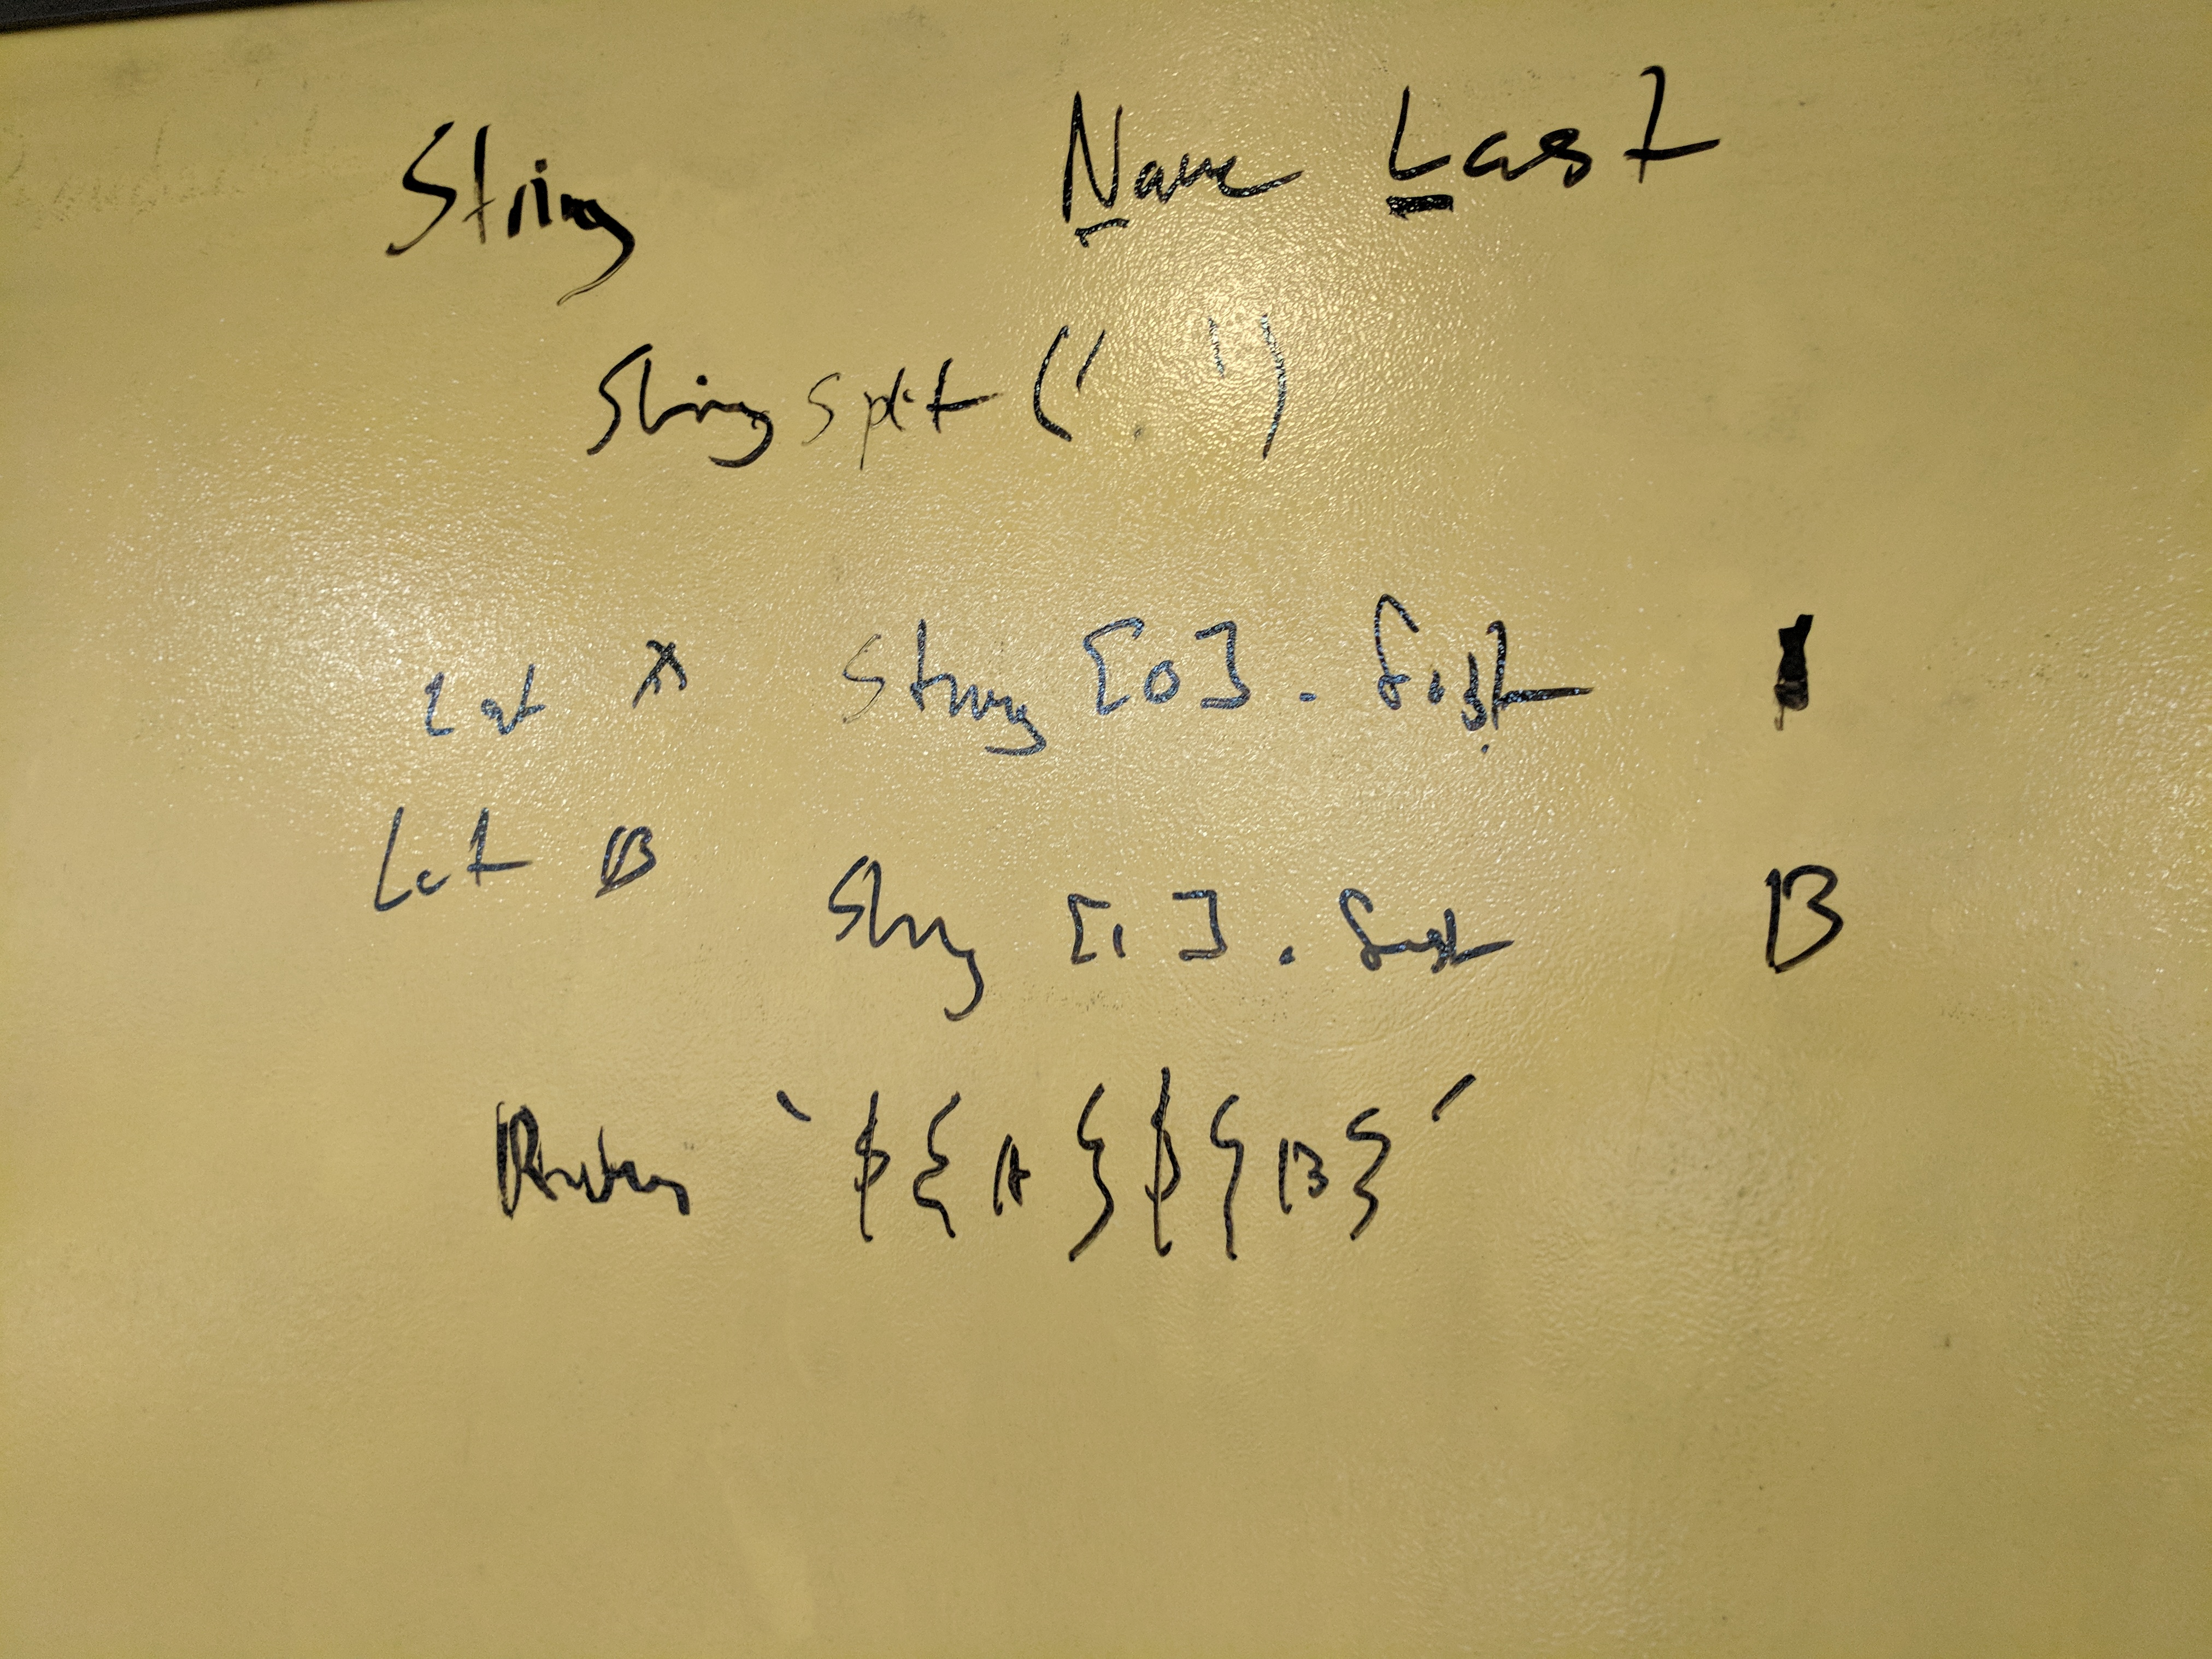 String Name Last
String split (' ')
Let A String [0] . first
Let B String [1] . first B
Return `${A}${B}`